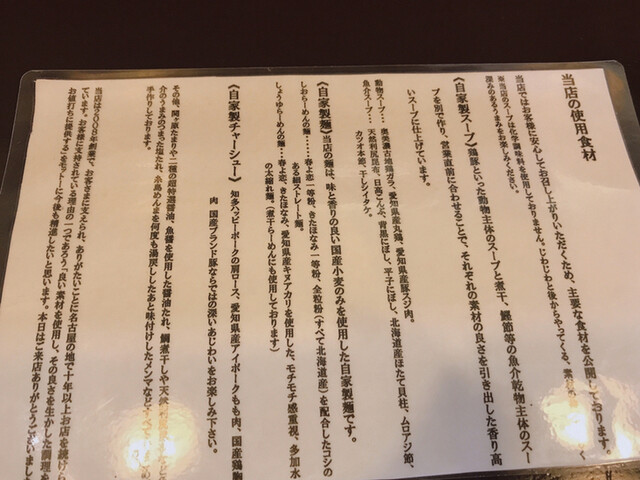 当店の使用食材
当店ではお客様に安心してお召し上がりいただくため、主要な食材を公開しております。
※当店のスープは化学調味料を使用しておりません。じわじわと後からやってくる、素
深みのあるうまみをお楽しみください。
《自家製スープ》鶏豚といった動物主体のスープと煮干、鰹節等の魚介乾物主体のスー
プを別で作り、営業直前に合わせることで、それぞれの素材の良さを引き出した香り高
いスープに仕上げています。
動物スープ・・・奥美濃古地鶏ガラ、愛知県産丸鶏、愛知県産豚スジ肉。
魚介スープ・・・天然利尻昆布、日高こんぶ、背黒にぼし、平子にぼし、北海道産ほたて貝柱、ムロアジ節、
カツオ本節、干しシイタケ。
《自家製麺》当店の麺は、味と香りの良い国産小麦のみを使用した自家製麺です。
しおらーめんの麺・・・・春よ恋一等粉、きたほなみ一等粉、全粒粉(すべて北海道産)を配合したコシの
ある細ストレート麺。
しょうゆらーめんの麺・・・春よ恋、きたほなみ、愛知県産キヌアカリを使用した、モチモチ感重視、多加水
の太縮れ麺。(煮干らーめんにも使用しております)
《自家製チャーシュー》知多ハッピーポークの肩ロース、愛知県産アイポークもも肉、国産鶏胸
肉 国産ブランド豚ならではの深いあじわいをお楽しみ下さい。
その他、関ヶ原たまりや二種の超特選醤油、魚醤を使用した醤油たれ、鯛煮干しや天然
介のうまみのつまった塩たれ、糸島めんまを何度も湯戻ししたあと味付けしたメンマなど
手作りしております。
当店は2008年創業で、お客さまに支えられ、ありがたいことに名古屋の地で十年以上お店を続けら
ています。お客様に支持されている理由の一つであろう「良い素材を使用し、その良さを生かした調理を
お値打ちに提供する」をモットーに今後も精進したいと思います。本日はご来店ありがとうございまし